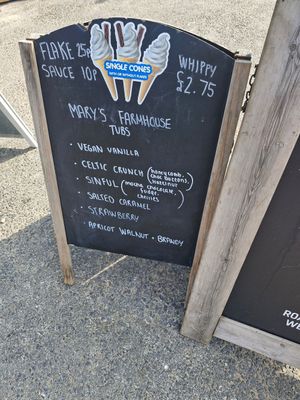 FLAKE 25p
SAUCE 10p
WHIPPY
£2.75
SINGLE CONES
WITH OR WITHOUT FLAKES
MARY'S FARMHOUSE
TUBS
• VEGAN VANILLA
• CELTIC CRUNCH (honeycomb, choc buttons,
• SINFUL (mocha, chocolate, fudge, cherries
• SALTED CARAMEL
• STRAWBERRY
• APRICOT WALNUT • BRANDY